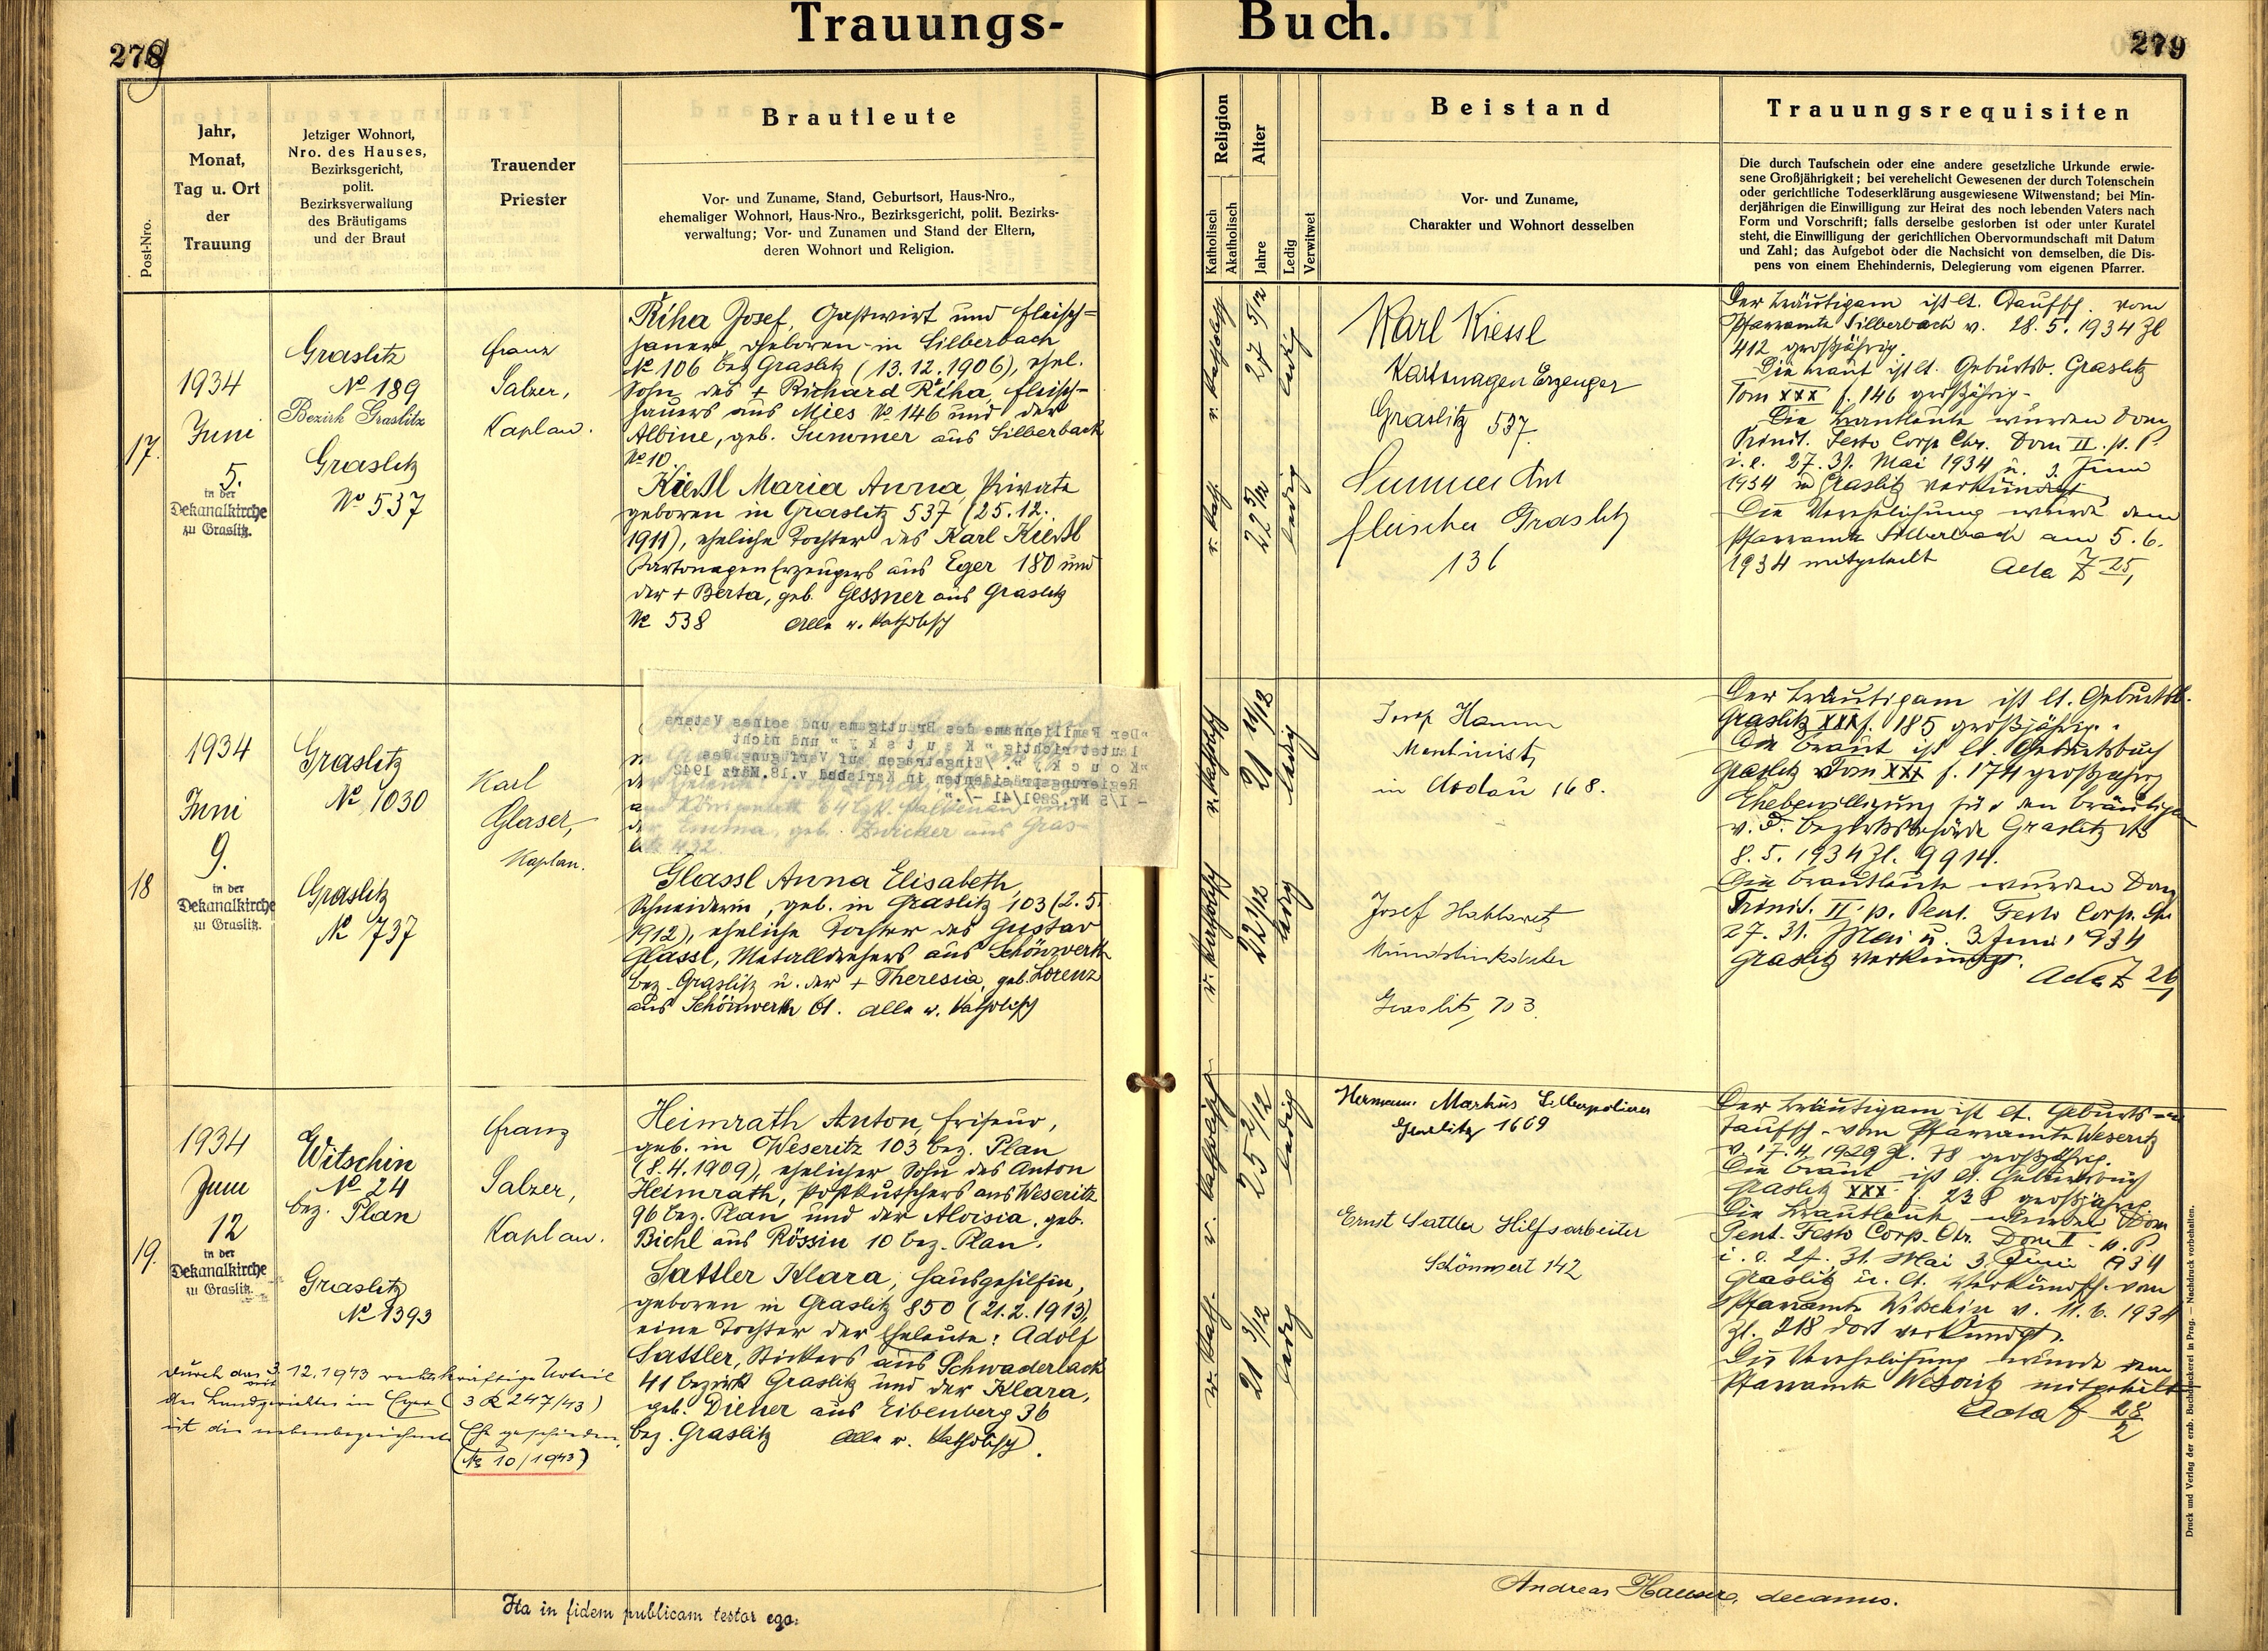 Trauungs- Buch.
278
279
Post-Nro.
Jahr,
Monat,
Tag u. Ort
der
Trauung
Jetziger Wohnort,
Nro. des Hauses,
Bezirksgericht,
polit.
Bezirksverwaltung
des Bräutigams
und der Braut
Trauender
Priester
Brautleute
Vor- und Zuname, Stand, Geburtsort, Haus-Nro.,
ehemaliger Wohnort, Haus-Nro., Bezirksgericht, polit. Bezirks-
verwaltung; Vor- und Zunamen und Stand der Eltern,
deren Wohnort und Religion.
Religion
Katholisch
Akatholisch
Alter
Jahre
Ledig
Verwitwet
Beistand
Vor- und Zuname,
Charakter und Wohnort desselben
Trauungsrequisiten
Die durch Taufschein oder eine andere gesetzliche Urkunde erwie-
sene Großjährigkeit; bei verehelicht Gewesenen der durch Totenschein
oder gerichtliche Todeserklärung ausgewiesene Witwenstand; bei Min-
derjährigen die Einwilligung zur Heirat des noch lebenden Vaters nach
Form und Vorschrift; falls derselbe gestorben ist oder unter Kuratel
steht, die Einwilligung der gerichtlichen Obervormundschaft mit Datum
und Zahl; das Aufgebot oder die Nachsicht von demselben, die Dis-
pens von einem Ehehindernis, Delegierung vom eigenen Pfarrer.
17.
1934
Juni
5.
in der
Dekanalkirche
zu Graslitz.
Graslitz
№ 189
Bezirk Graslitz
Graslitz
№ 537
Franz
Salzer,
Kaplan.
Řiha Josef, Gastwirt und Fleisch=
hauer, geboren in Silberbach
№ 106 bez Graslitz (13.12.1906), ehel.
Sohn des + Richard Řiha, Fleisch-
hauers aus Mies № 146 und der
Albine, geb. Summer aus Silberbach
№ 10.
Kießl Maria Anna, Private
geboren in Graslitz 537 (25.12.
1911), eheliche Tochter des Karl Kießl
Kartonagen Erzeugers aus Eger 180 und
der + Berta, geb. Gessner aus Graslitz
№ 538 Alle r. katholisch
r. katholisch
27 5/12
ledig
r. kath.
22 5/12
ledig
Karl Kiessl
Kartonagen Erzeuger
Graslitz 537
Summer Ant
Fleischer Graslitz
136
Der Bräutigam ist lt. Taufsch. vom
Pfarramte Silberbach v. 28.5.1934 Zl
412 großjährig.
Die Braut ist lt. Geburtsb. Graslitz
Tom XXX f. 146 großjährig.
Die Brautleute wurden Dom
Trinit. Festo Corp Chr. Dom II. p. P
i.e. 27. 31. Mai 1934 u. 3. Juni
1934 in Graslitz verkündigt.
Die Verehelichung wurde dem
Pfarramte Silberbach am 5.6.
1934 mitgeteilt Acta Z 25,
18
1934
Juni
9.
in der
Dekanalkirche
zu Graslitz.
Graslitz
№ 1030
Graslitz
№ 737
Karl
Glaser,
Kaplan.
"Der Familienname des Bräutigams und seines Vaters
lautet richtig "K u t s k y " und nicht
"K o u c k y ". /Eingetragen zur Verfügung des
Regierungspräsidenten in Karlsbad v.18.März 1942
- I/5 Nr.2891/41 -/."
der Emma, geb. Zwicker aus Gras-
litz 432.
Glassl Anna Elisabeth,
Schneiderin, geb. in Graslitz 103 (2.5.
1912), eheliche Tochter des Gustav
Glassl, Metalldrehers aus Schönwerth
bez. Graslitz u. der + Theresia, geb. Lorenz
aus Schönwerth 61. Alle r. katholisch
r. katholisch
21 11/12
ledig
r. katholisch
22 1/12
ledig
Josef Hamm
in 168.
Josef
Graslitz, 703.
Der Bräutigam ist lt. Geburtsb.
Graslitz XXX f. 185 großjährig.
Die Braut ist lt. Geburtsbuch
Graslitz Tom XXX f. 174 großjährig
Ehebewilligung für den Bräutigam
v. d. Bezirksbehörde Graslitz
8.5.1934 Zl. 9914.
Die Brautleute wurden Dom
Trinit. II. p. Pent. Festo Corp. Chr
27. 31. Mai u. 3. Juni 1934
Graslitz verkündigt.
Acta Z 26
19.
1934
Juni
12
in der
Dekanalkirche
zu Graslitz.
Witschin
№ 24
bez. Plan
Graslitz
№ 1393
Franz
Salzer,
Kaplan.
Heimrath Anton, Friseur,
geb. in Weseritz 103 bez. Plan
(8.4.1909), ehelicher Sohn des Anton
Heimrath, Postkutschers aus Weseritz
96 bez. Plan und der Aloisia, geb.
Bichl aus Rössin 10 bez. Plan.
Sattler Klara, Hausgehilfin,
geboren in Graslitz 850 (21.2.1913),
eine Tochter der Eheleute: Adolf
Sattler, Stickers aus Schwaderbach
41 bezirk Graslitz und der Klara,
geb. Diener aus Eibenberg 36
bez. Graslitz Alle r. katholisch.
Durch das mit 3. 12.1943 rechtskräftige Urteil
des Landgerichtes in Eger (3 R 247/43)
ist die nebenbezeichnete Ehe geschieden.
(№ 10/1943)
r. katholisch
25 2/12
ledig
r. kath.
21 3/12
ledig
Hermann Markus Silberpolierer
Graslitz 1669
Ernst Sattler Hilfsarbeiter
Schönwert 142
Der Bräutigam ist lt. Geburts-
taufsch. vom Pfarramte Weseritz
v. 17.4.1929 Zl. 78 großjährig.
Die Braut ist lt. Geburtsbuch
Graslitz XXX f. 238 großjährig
Die Brautleute wurden Dom
Pent. Festo Corp. Chr. Dom II. p. P.
i. e. 27. 31. Mai 3. Juni 1934
Graslitz u. lt. Verkündsch. vom
Pfarramte Witschin v. 11.6.1934
Zl. 218 dort verkündigt.
Die Verehelichung wurde dem
Pfarramte Weseritz mitgeteilt
Acta f 28/2
Ita in fidem publicam testor ego:
Andreas Hauser, decanus.
Druck und Verlag der erzb. Buchdruckerei in Prag. — Nachdruck vorbehalten.